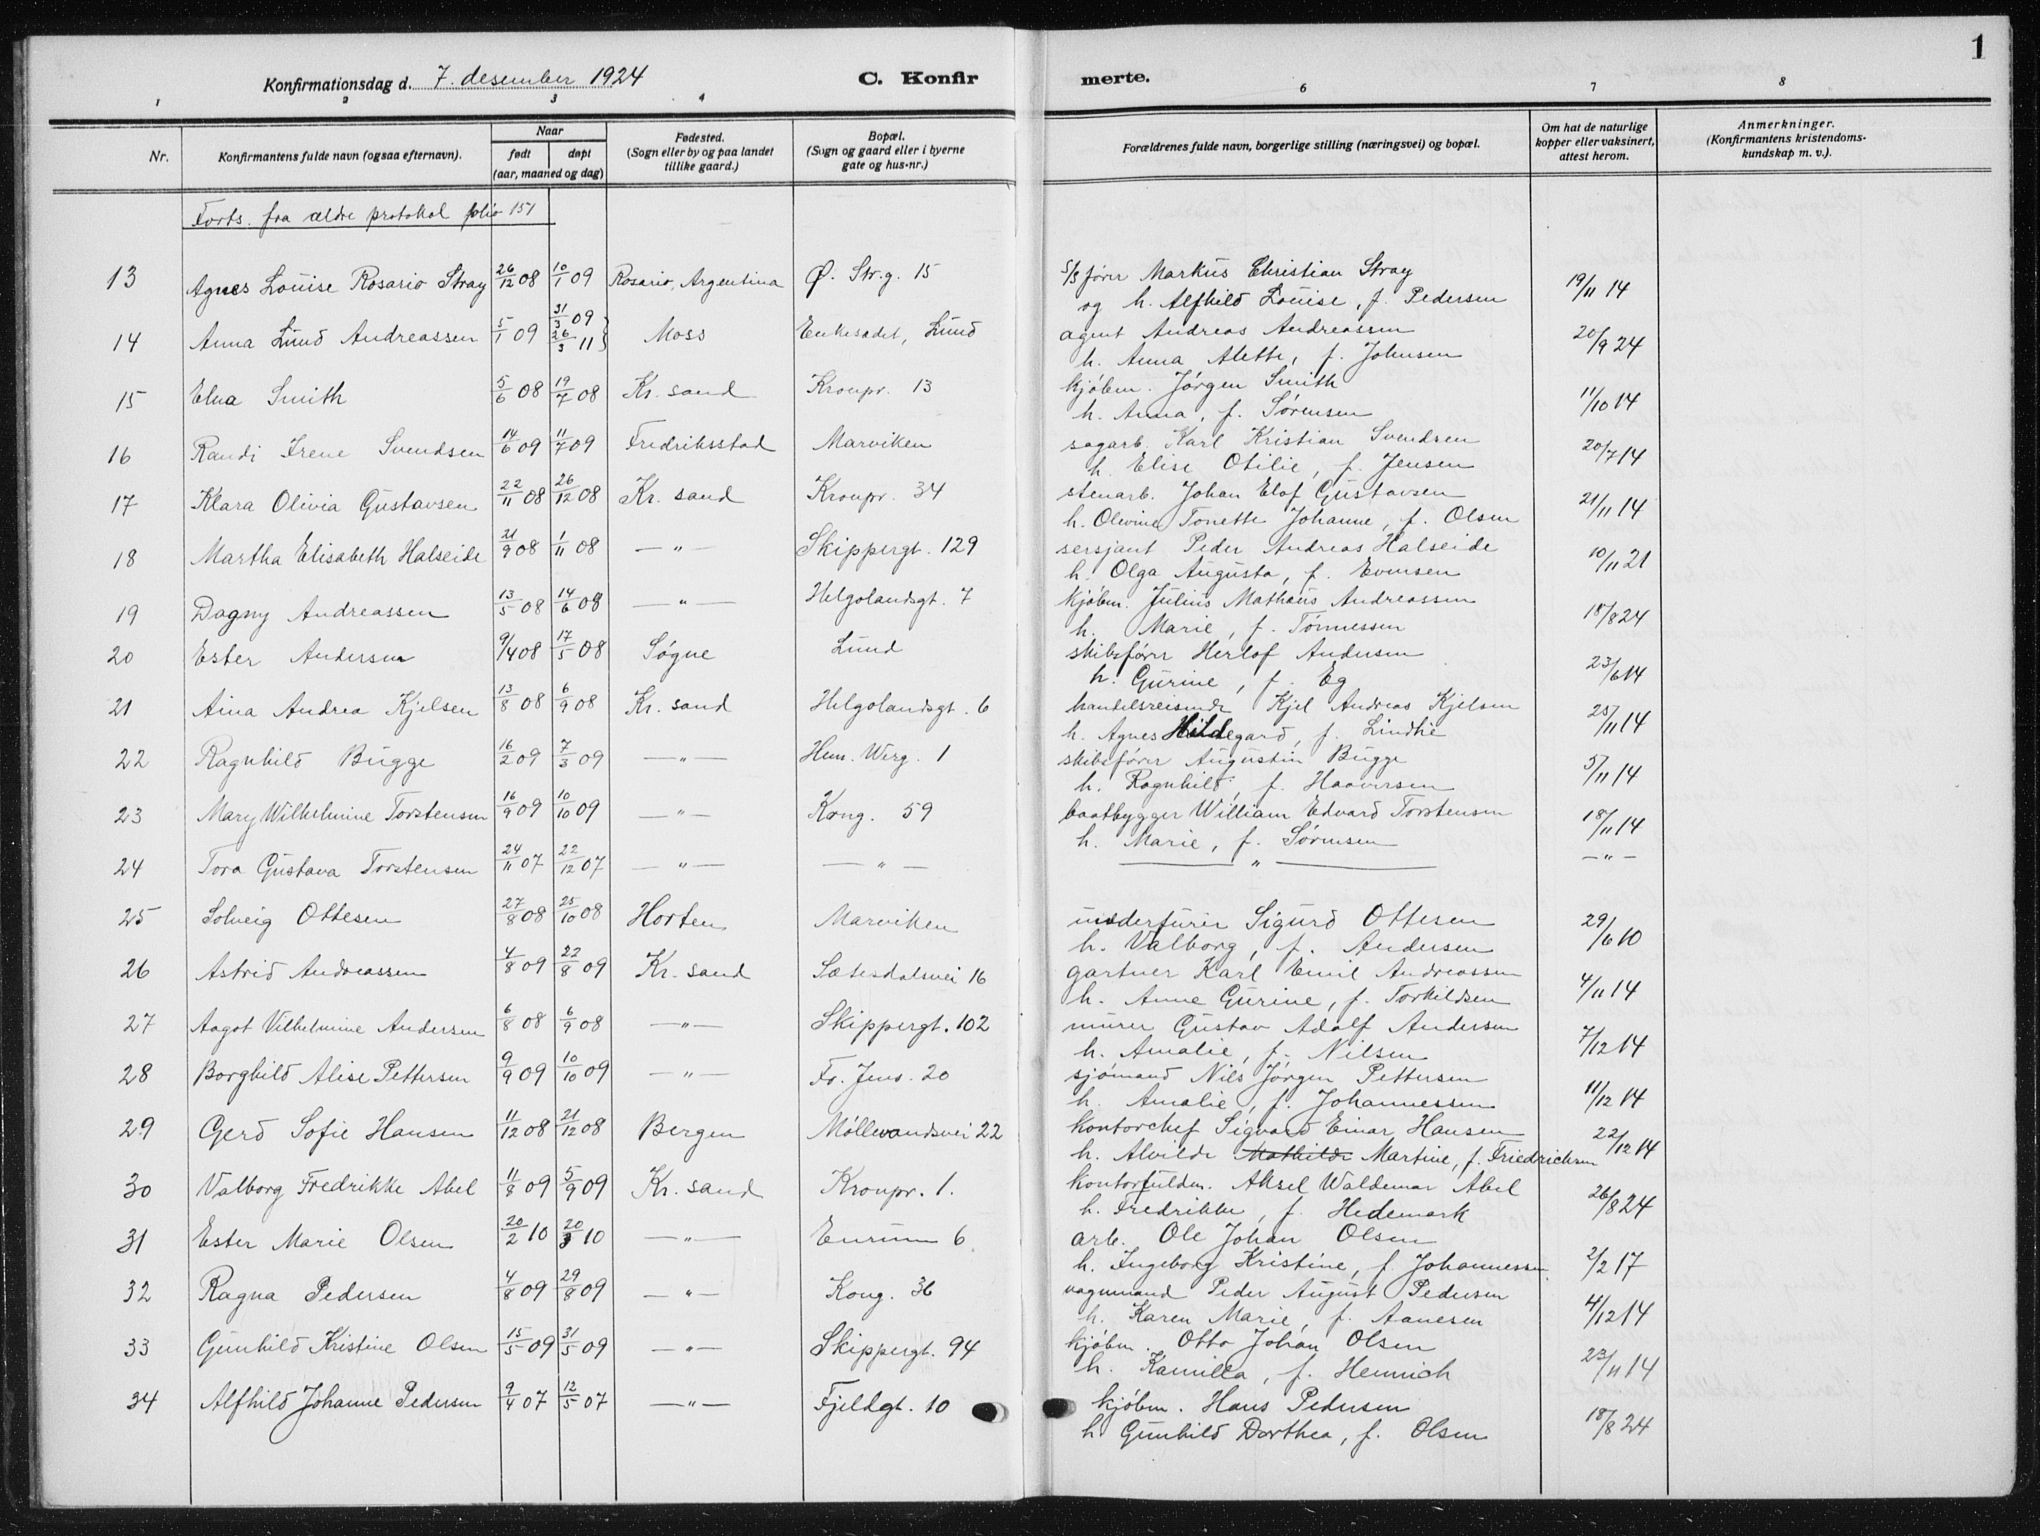 1
Konfirmationsdag d. 7. desember 1924 C. Konfirmerte.
1 2 3 4 6 7 8
Nr. Konfirmantens fulde navn (ogsaa efternavn). Naar født døpt (aar, maaned og dag) Fødested. (Sogn eller by og paa landet tillike gaard.) Bopæl. (Sogn og gaard eller i byerne gate og hus-nr.) Forældrenes fulde navn, borgerlige stilling (næringsvei) og bopæl. Om hat de naturlige kopper eller vaksinert, attest herom. Anmerkninger. (Konfirmantens kristendomskundskap m. v.).
Forts. fra ældre protokol folio 151
13 Agnes Louise Rosario Stray 26/12 08 10/1 09 Rosario, Argentina Ø. Str.g. 15 s/s fører Markus Christian Stray 19/11 14
og h. Alfhild Louise, f. Pedersen
14 Anna Lund Andreassen 5/1 09 31/3 09 26/3 11 Moss Enkesædet, Lund agent Andreas Andreassen 20/9 24
h. Anna Alette, f. Johnsen
15 Elna Smith 5/6 08 19/7 08 Kr. sand Kronpr. 13 kjøbm. Jørgen Smith 11/10 14
h. Anna, f. Sørensen
16 Randi Irene Svendsen 14/6 09 11/7 09 Fredriksstad Marviken sagarb. Karl Kristian Svendsen 20/7 14
h. Elise Otilie, f. Jensen
17 Klara Olivia Gustavsen 22/11 08 26/12 08 Kr. sand Kronpr. 34 stenarb. Johan Elof Gustavsen 21/11 14
h. Olevine Tonette Johanne, f. Olsen
18 Martha Elisabeth Halseide 21/9 08 1/11 08 — " — Skippergt. 129 sersjant Peder Andreas Halseide 10/11 21
h. Olga Augusta, f. Evensen
19 Dagny Andreassen 13/5 08 14/6 08 — " — Helgolandsgt. 7 kjøbm. Julius Mathæus Andreassen 18/8 24
h. Marie, f. Tønnessen
20 Ester Andersen 9/4 08 17/5 08 Søgne Lund skibsfører Herlof Andersen 23/6 14
h. Gurine, f. Eg
21 Aina Andrea Kjelsen 13/8 08 6/9 08 Kr. sand Helgolandsgt. 6 handelsreisende Kjel Andreas Kjelsen 25/11 14
h. Agnes Hildegard, f. Lindtie
22 Ragnhild Bugge 16/2 09 7/3 09 — " — Hen. Werg. 1 skibsfører Augustin Bugge 5/11 14
h. Ragnhild, f. Haaversen
23 Mary Wilhelmine Torstensen 16/9 09 10/10 09 — " — Kong. 59 baatbygger William Edvard Torstensen 18/11 14
h. Marie, f. Sørensen
24 Tora Gustava Torstensen 24/11 07 22/12 07 — " — — " — — " — — " —
25 Solveig Ottesen 27/8 08 25/10 08 Horten Marviken underfurer Sigurd Ottesen 29/6 10
h. Valborg, f. Andersen
26 Astrid Andreassen 4/8 09 22/8 09 Kr. sand Sætesdalsvei 16 gartner Karl Emil Andreassen 4/11 14
h. Anne Gurine, f. Torkildsen
27 Aagot Vilhelmine Andersen 6/8 08 6/9 08 — " — Skippergt. 102 murer Gustav Adolf Andersen 7/12 14
h. Amalie, f. Nilsen
28 Borghild Alise Pettersen 9/9 09 10/10 09 — " — Fr. Jens. 20 sjømand Nils Jørgen Pettersen 11/12 14
h. Amalie, f. Johannessen
29 Gerd Sofie Hansen 11/12 08 21/12 08 Bergen Møllevandsvei 22 kontorchef Sigvard Einar Hansen 22/12 14
h. Alvilde Mathilde Martine, f. Friedrichsen
30 Valborg Fredrikke Abel 11/8 09 5/9 09 Kr. sand Kronpr. 1. kontorfuldm. Aksel Waldemar Abel 26/8 24
h. Fredrikke, f. Hedemark
31 Ester Marie Olsen 20/2 10 20/3 10 — " — Enrum 6 arb. Ole Johan Olsen 2/2 17
h. Ingeborg Kristine, f. Johannessen
32 Ragna Pedersen 4/8 09 29/8 09 — " — Kong. 36 vognmand Peder August Pedersen 4/12 14
h. Karen Marie, f. Aanesen
33 Gunhild Kristine Olsen 15/5 09 31/5 09 — " — Skippergt. 94 kjøbm. Otto Johan Olsen 23/11 14
h. Kamilla, f. Hennich
34 Alfhild Johanne Pedersen 9/4 07 12/5 07 — " — Fjeldgt. 10 kjøbm. Hans Pedersen 18/8 24
h. Gunhild Dorthea, f. Olsen